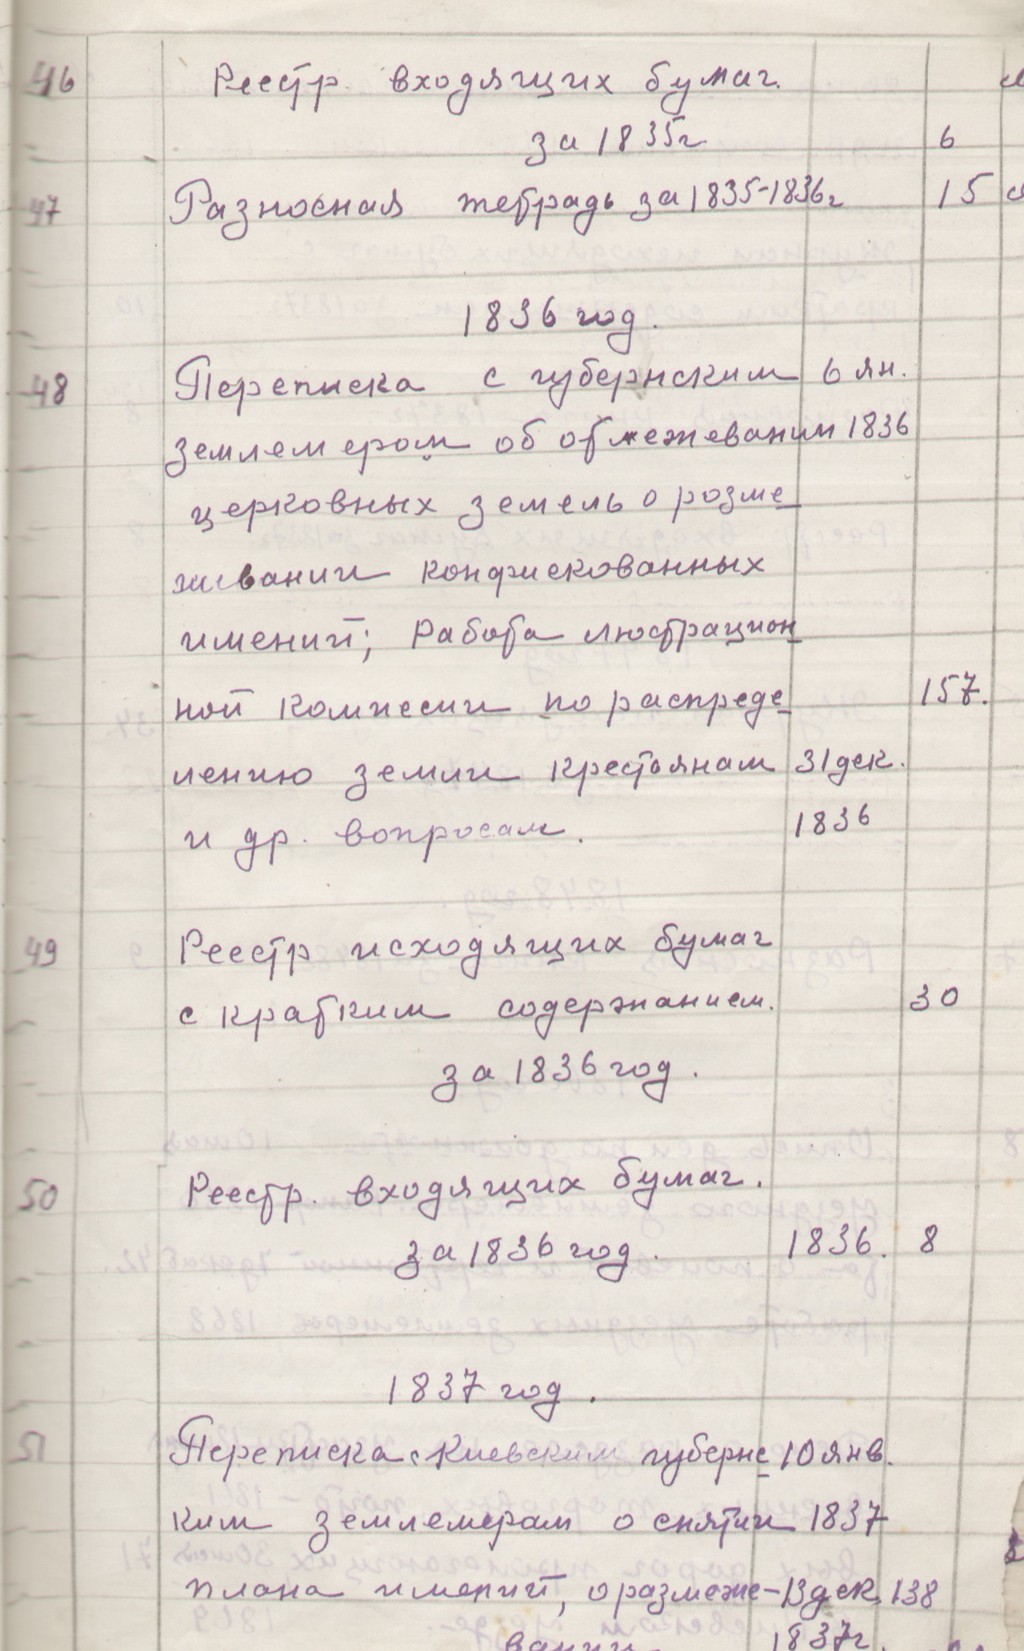 46 Реестр. входящих бумаг.
за 1835г 6
47 Разносная тетрадь за 1835-1836г 15
1836 год.
48 Переписка с губернским 6 ян.
землемером об обмежевании 1836
церковных земель о розме
жевании конфискованных
имений; Работа люстрацион
ной комиссии по распреде 157.
лению земли крестьянам 31 дек.
и др. вопросам. 1836
49 Реестр исходящих бумаг
с кратким содержанием. 30
за 1836 год.
50 Реестр. входящих бумаг.
за 1836 год. 1836. 8
1837 год.
51 Переписка с Киевским губернс 10 янв.
ким землемерам о снятии 1837
плана имений, о размеже- 13 дек. 138
вании 1837г.